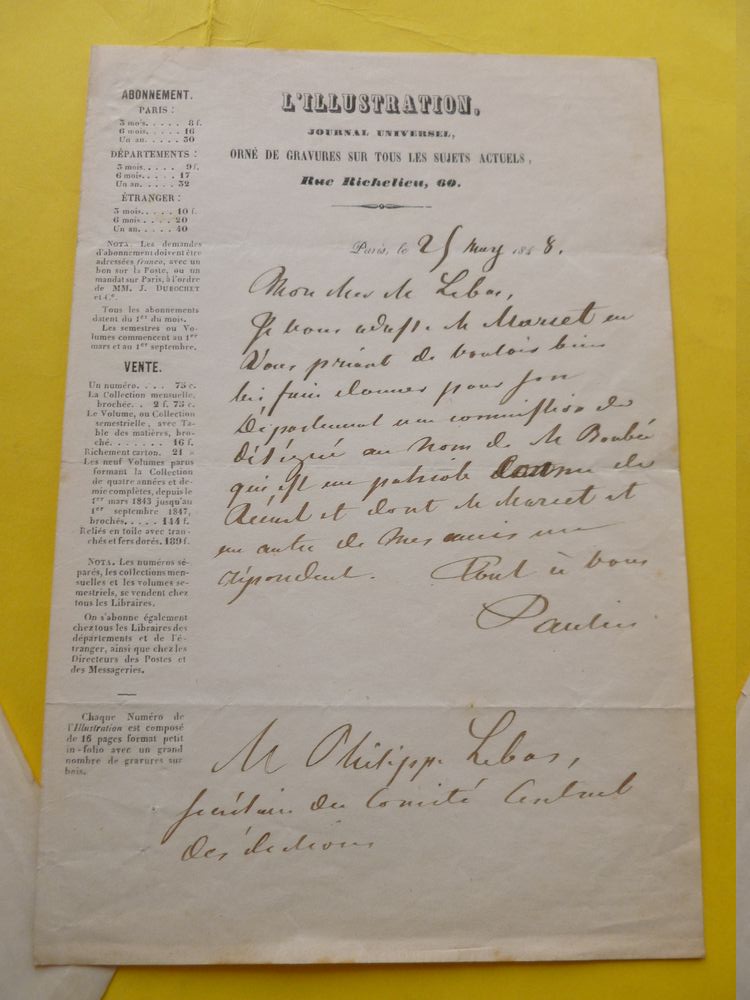 ABONNEMENT.
PARIS :
3 mois. . . . . 8 f.
6 mois. . . . . 16
Un an. . . . . 30
DÉPARTEMENTS :
3 mois. . . . . 9 f.
6 mois. . . . . 17
Un an. . . . . 32
ÉTRANGER :
3 mois. . . . . 10 f.
6 mois. . . . . 20
Un an. . . . . 40
NOTA. Les demandes
d'abonnement doivent être
adressées franco, avec un
bon sur la Poste, ou un
mandat sur Paris, à l'ordre
de MM. J. DUBOCHET
et Cᵉ.
Tous les abonnements
datent du 1er du mois.
Les semestres ou Vo-
lumes commencent au 1er
mars et au 1er septembre.
VENTE.
Un numéro. . . . 75 c.
La Collection mensuelle,
brochée. . 2 f. 75 c.
Le Volume, ou Collection
semestrielle, avec Ta-
ble des matières, bro-
ché. . . . . . . . 16 f.
Richement carton. 21 »
Les neuf Volumes parus
formant la Collection
de quatre années et de-
mie complètes, depuis le
1er mars 1843 jusqu'au
1er septembre 1847,
brochés. . . . . 144 f.
Reliés en toile avec tran-
chés et fers dorés. 189 f.
NOTA. Les numéros sé-
parés, les collections men-
suelles et les volumes se-
mestriels, se vendent chez
tous les Libraires.
On s'abonne également
chez tous les Libraires des
départements et de l'é-
tranger, ainsi que chez les
Directeurs des Postes et
des Messageries.
Chaque Numéro de
l'Illustration est composé
de 16 pages format petit
in-folio avec un grand
nombre de gravures sur
bois.
L'ILLUSTRATION,
JOURNAL UNIVERSEL,
ORNÉ DE GRAVURES SUR TOUS LES SUJETS ACTUELS,
Rue Richelieu, 60.
Paris, le 25 mars 1848.
Mon cher M Lebas,
Je vous adresse M Marset en
vous priant de vouloir bien
lui faire donner pour son
Département une commission de
délégué au nom de M Boubée
qui est un patriote connu de
et dont M Marset et
un autre de mes amis
répondent. Tout à vous
Paulin
M Philippe Lebas,
secrétaire du Comité Central
des élections